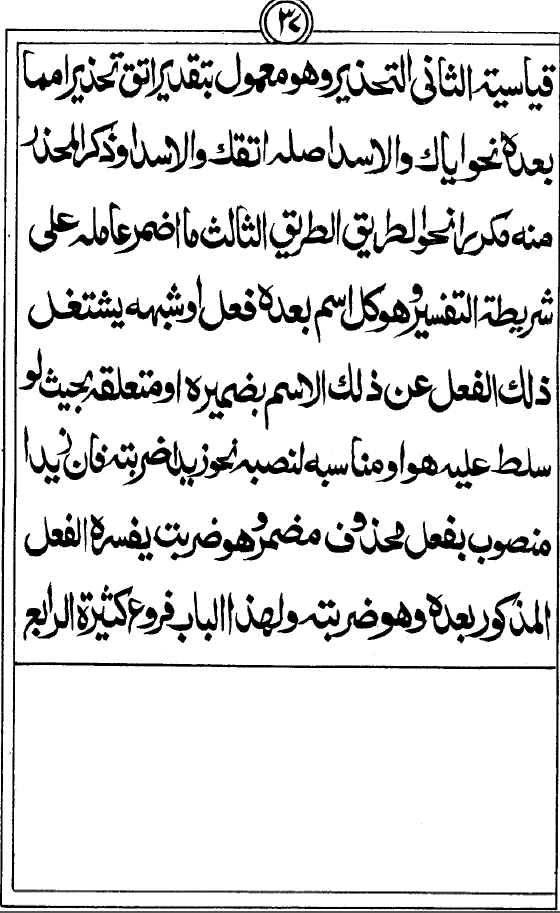 ٣٧
قياسية الثانى التحذير وهو معمول بتقدير اتق تحذيرا مما
بعده نحو اياك والاسد اصله اتقك والاسد او ذكر المحذر
منه مكررا نحو الطريق الطريق الثالث ما اضمر عامله على
شريطة التفسير وهو كل اسم بعده فعل او شبهه يشتغل
ذلك الفعل عن ذلك الاسم بضميره او متعلقه بحيث لو
سلط عليه هو او مناسبه لنصبه نحو زيدا ضربته فان زيدا
منصوب بفعل محذوف مضمر وهو ضربت يفسره الفعل
المذكور بعده وهو ضربته ولهذا الباب فروع كثيرة الرابع